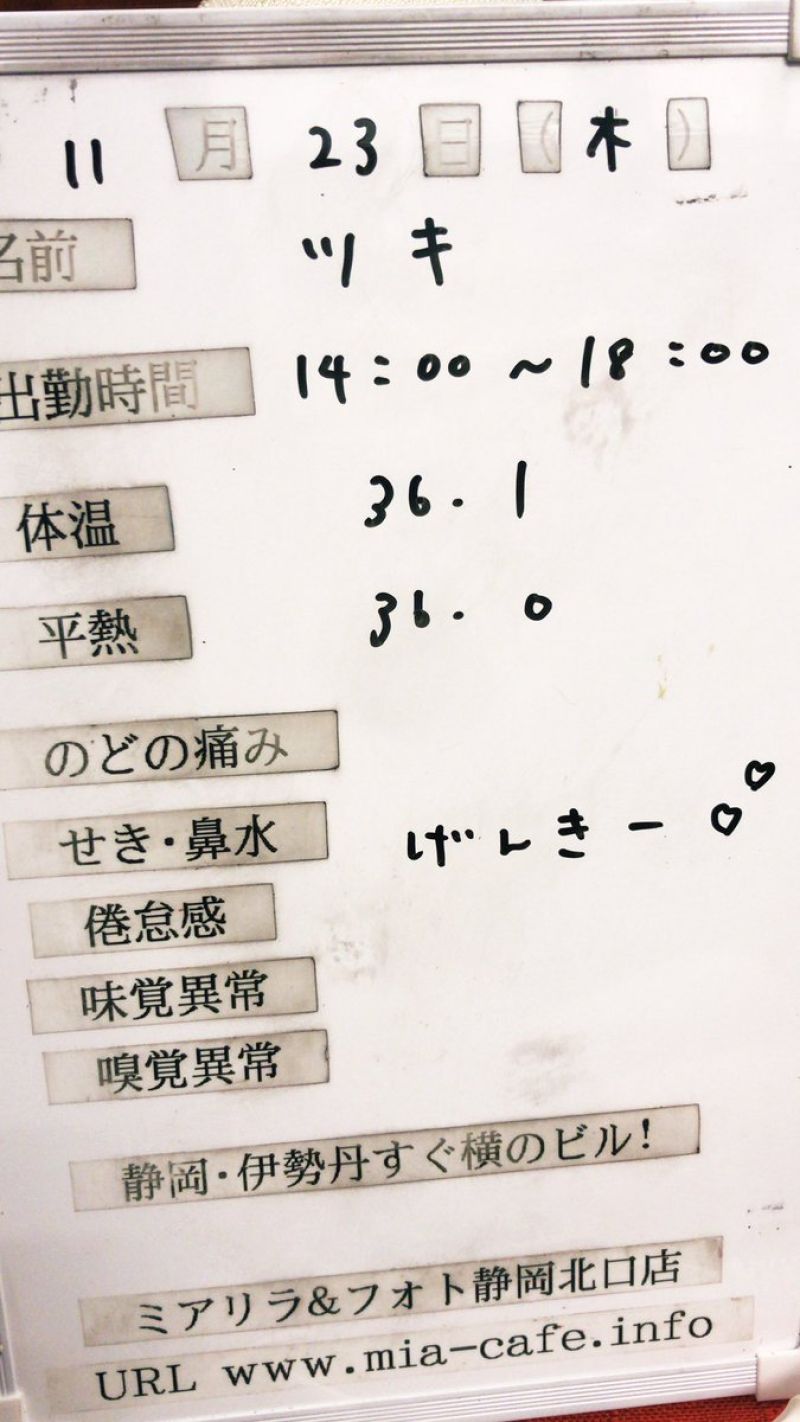 11月23日(木)
名前 ツキ
出勤時間 14:00~18:00
体温 36.1
平熱 36.0
のどの痛み
せき・鼻水 げんきー♡♡
倦怠感
味覚異常
嗅覚異常
静岡・伊勢丹すぐ横のビル!
ミアリラ&フォト静岡北口店
URL www.mia-cafe.info